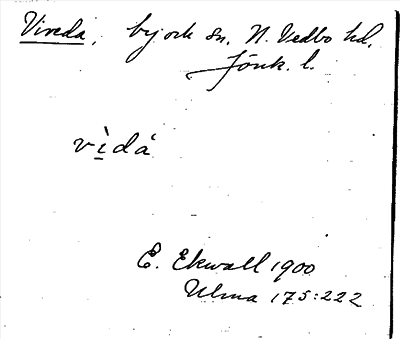 Vireda, by och sn, N. Vedbo hd,
Jönk. l.
vìdá
E. Ekwall 1900
Ulma 175:222